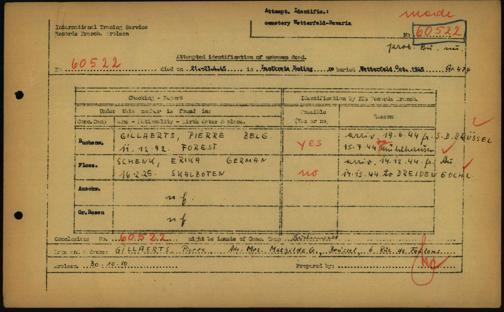 Attempt. Identific.:
cemetery Wetterfeld-Bavaria
made
International Tracing Service
Records Branch. Arolsen
No 60522
Attempted identification of unknown dead.
No 60522 died on 21.-23.4.45 in Landkreis Roding re buried Wetterfeld Oct. 1945 Gr 474
Checking - Report
Identification by ITS Records Branch.
Under this number is found in:
Possible
(Yes or no)
Reason
Conc. Camp
Name - Nationality - Birth date & place.
Buchenw. GILLAERTS, PIERRE BELG. yes arriv. 19.6.44 fr. S.D. BRÜSSEL
11.12.92. FOREST 15.7.44 Mühlhausen
Floss. SCHENK, ERIKA GERMAN no arriv. 14.12.44
16.2.25. SKALBOTEN 14.12.44 to DRESDEN
Auschw. n.f.
Gr. Rosen n.f.
Conclusion: No. 60522 might be inmate of Conc. Camp
GILLAERTS, Pierre
Arolsen 30.10.50 Prepared by:
No